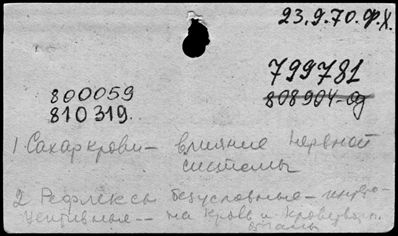 23.9.70. Ф.Х.
799781
808904-од
800059
810319.
1 Сахар крови - влияние нервной
системы
2 Рефлексы безусловные - интеро-
цептивные -- на кровь и кроветворн.